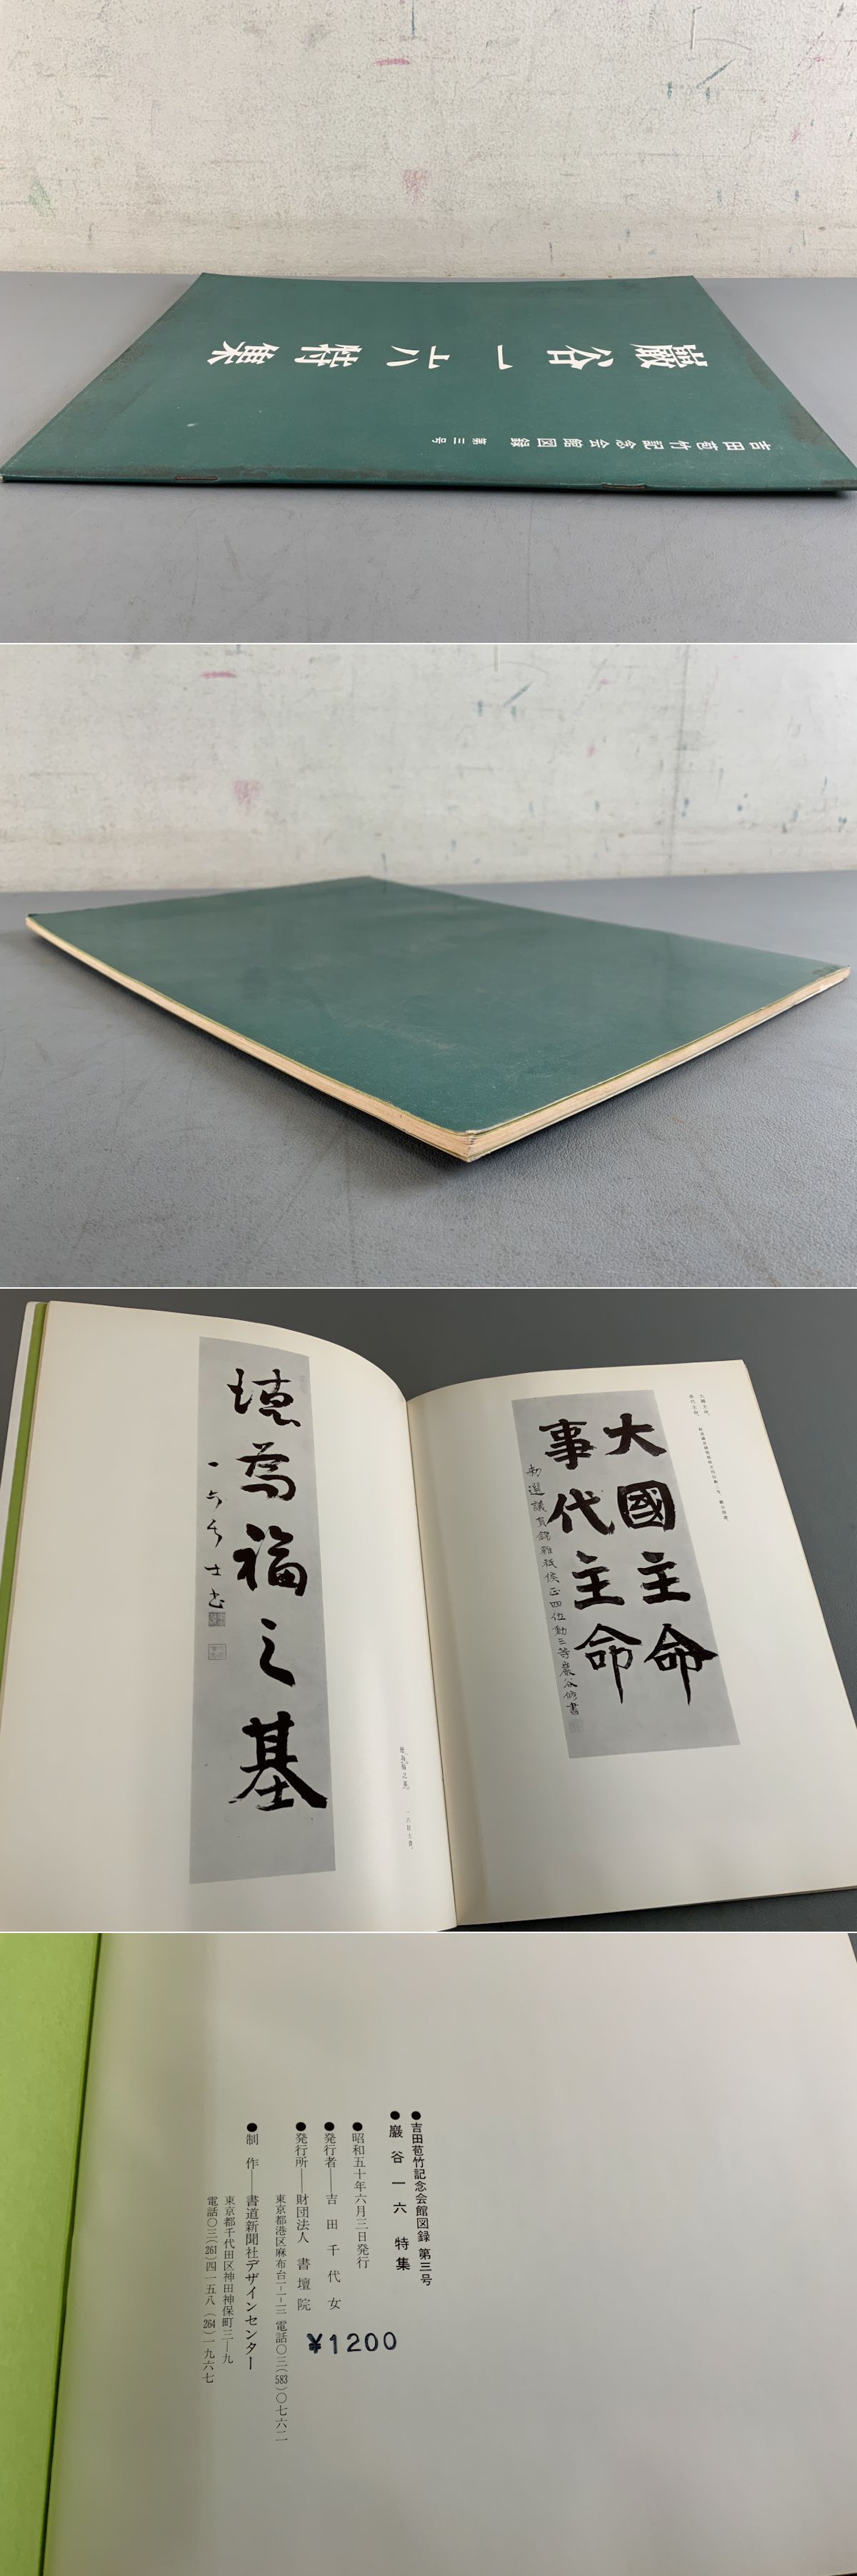 巖谷一六特集
吉田苞竹記念会館図録 第三号
大國主命
事代主命
勅選議員錦雞祇候正四位勲三等巖谷修書
徳為福之基
一六居士書
●吉田苞竹記念会館図録 第三号
●巖谷一六 特集
●昭和五十年六月三日発行
●発行者──吉田千代女
●発行所──財団法人 書壇院
東京都港区麻布台一-一-三 電話〇三(583)〇七六二
●制 作──書道新聞社デザインセンター
東京都千代田区神田神保町三-九
電話〇三(261)四一五八 (264)一九六七
¥1200